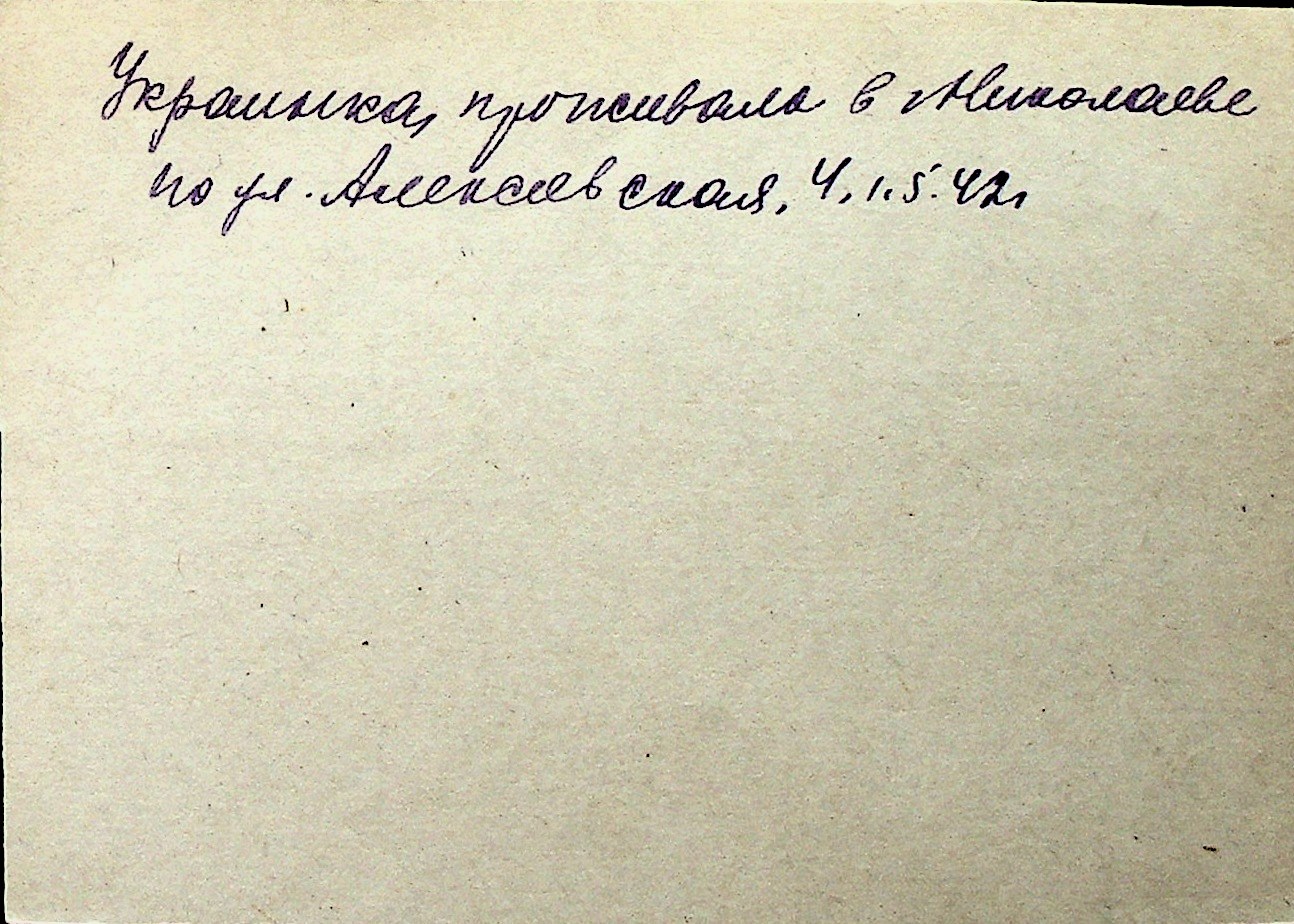 Украинка, проживала в Николаеве
по ул. Алексеевская, 4, 1.5.42г